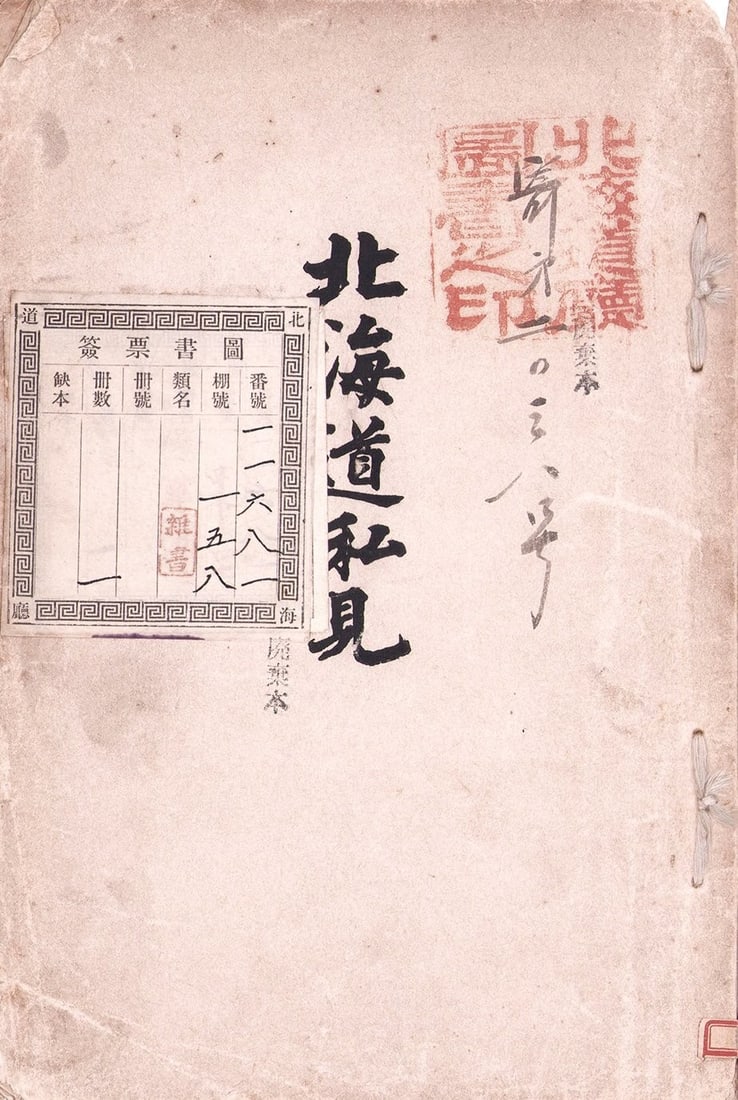 北海道廳
圖書之印
廃棄本
二〇三八号
北海道私見
北海道廳
圖書票簽
番號
一一六八一
棚號
一五八
類名
雜書
冊號
冊數
一
缺本
廃棄本